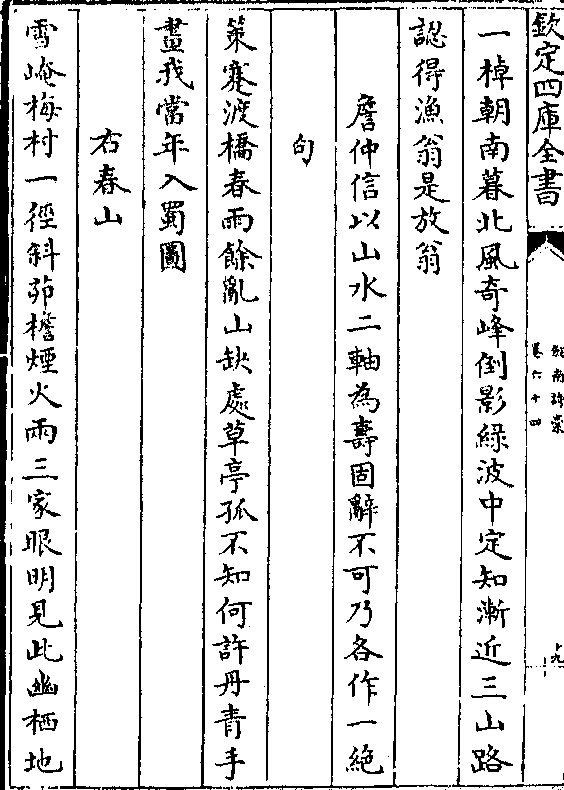 欽定四庫全書
劍南詩稾
卷六十四
十九
一棹朝南暮北風奇峰倒影綠波中定知漸近三山路
認得漁翁是放翁
詹仲信以山水二軸為壽固辭不可乃各作一絶
句
策蹇渡橋春雨餘亂山缺處草亭孤不知何許丹青手
畫我當年入蜀圖
右春山
雪崦梅村一徑斜茆檐煙火兩三家眼明見此幽栖地